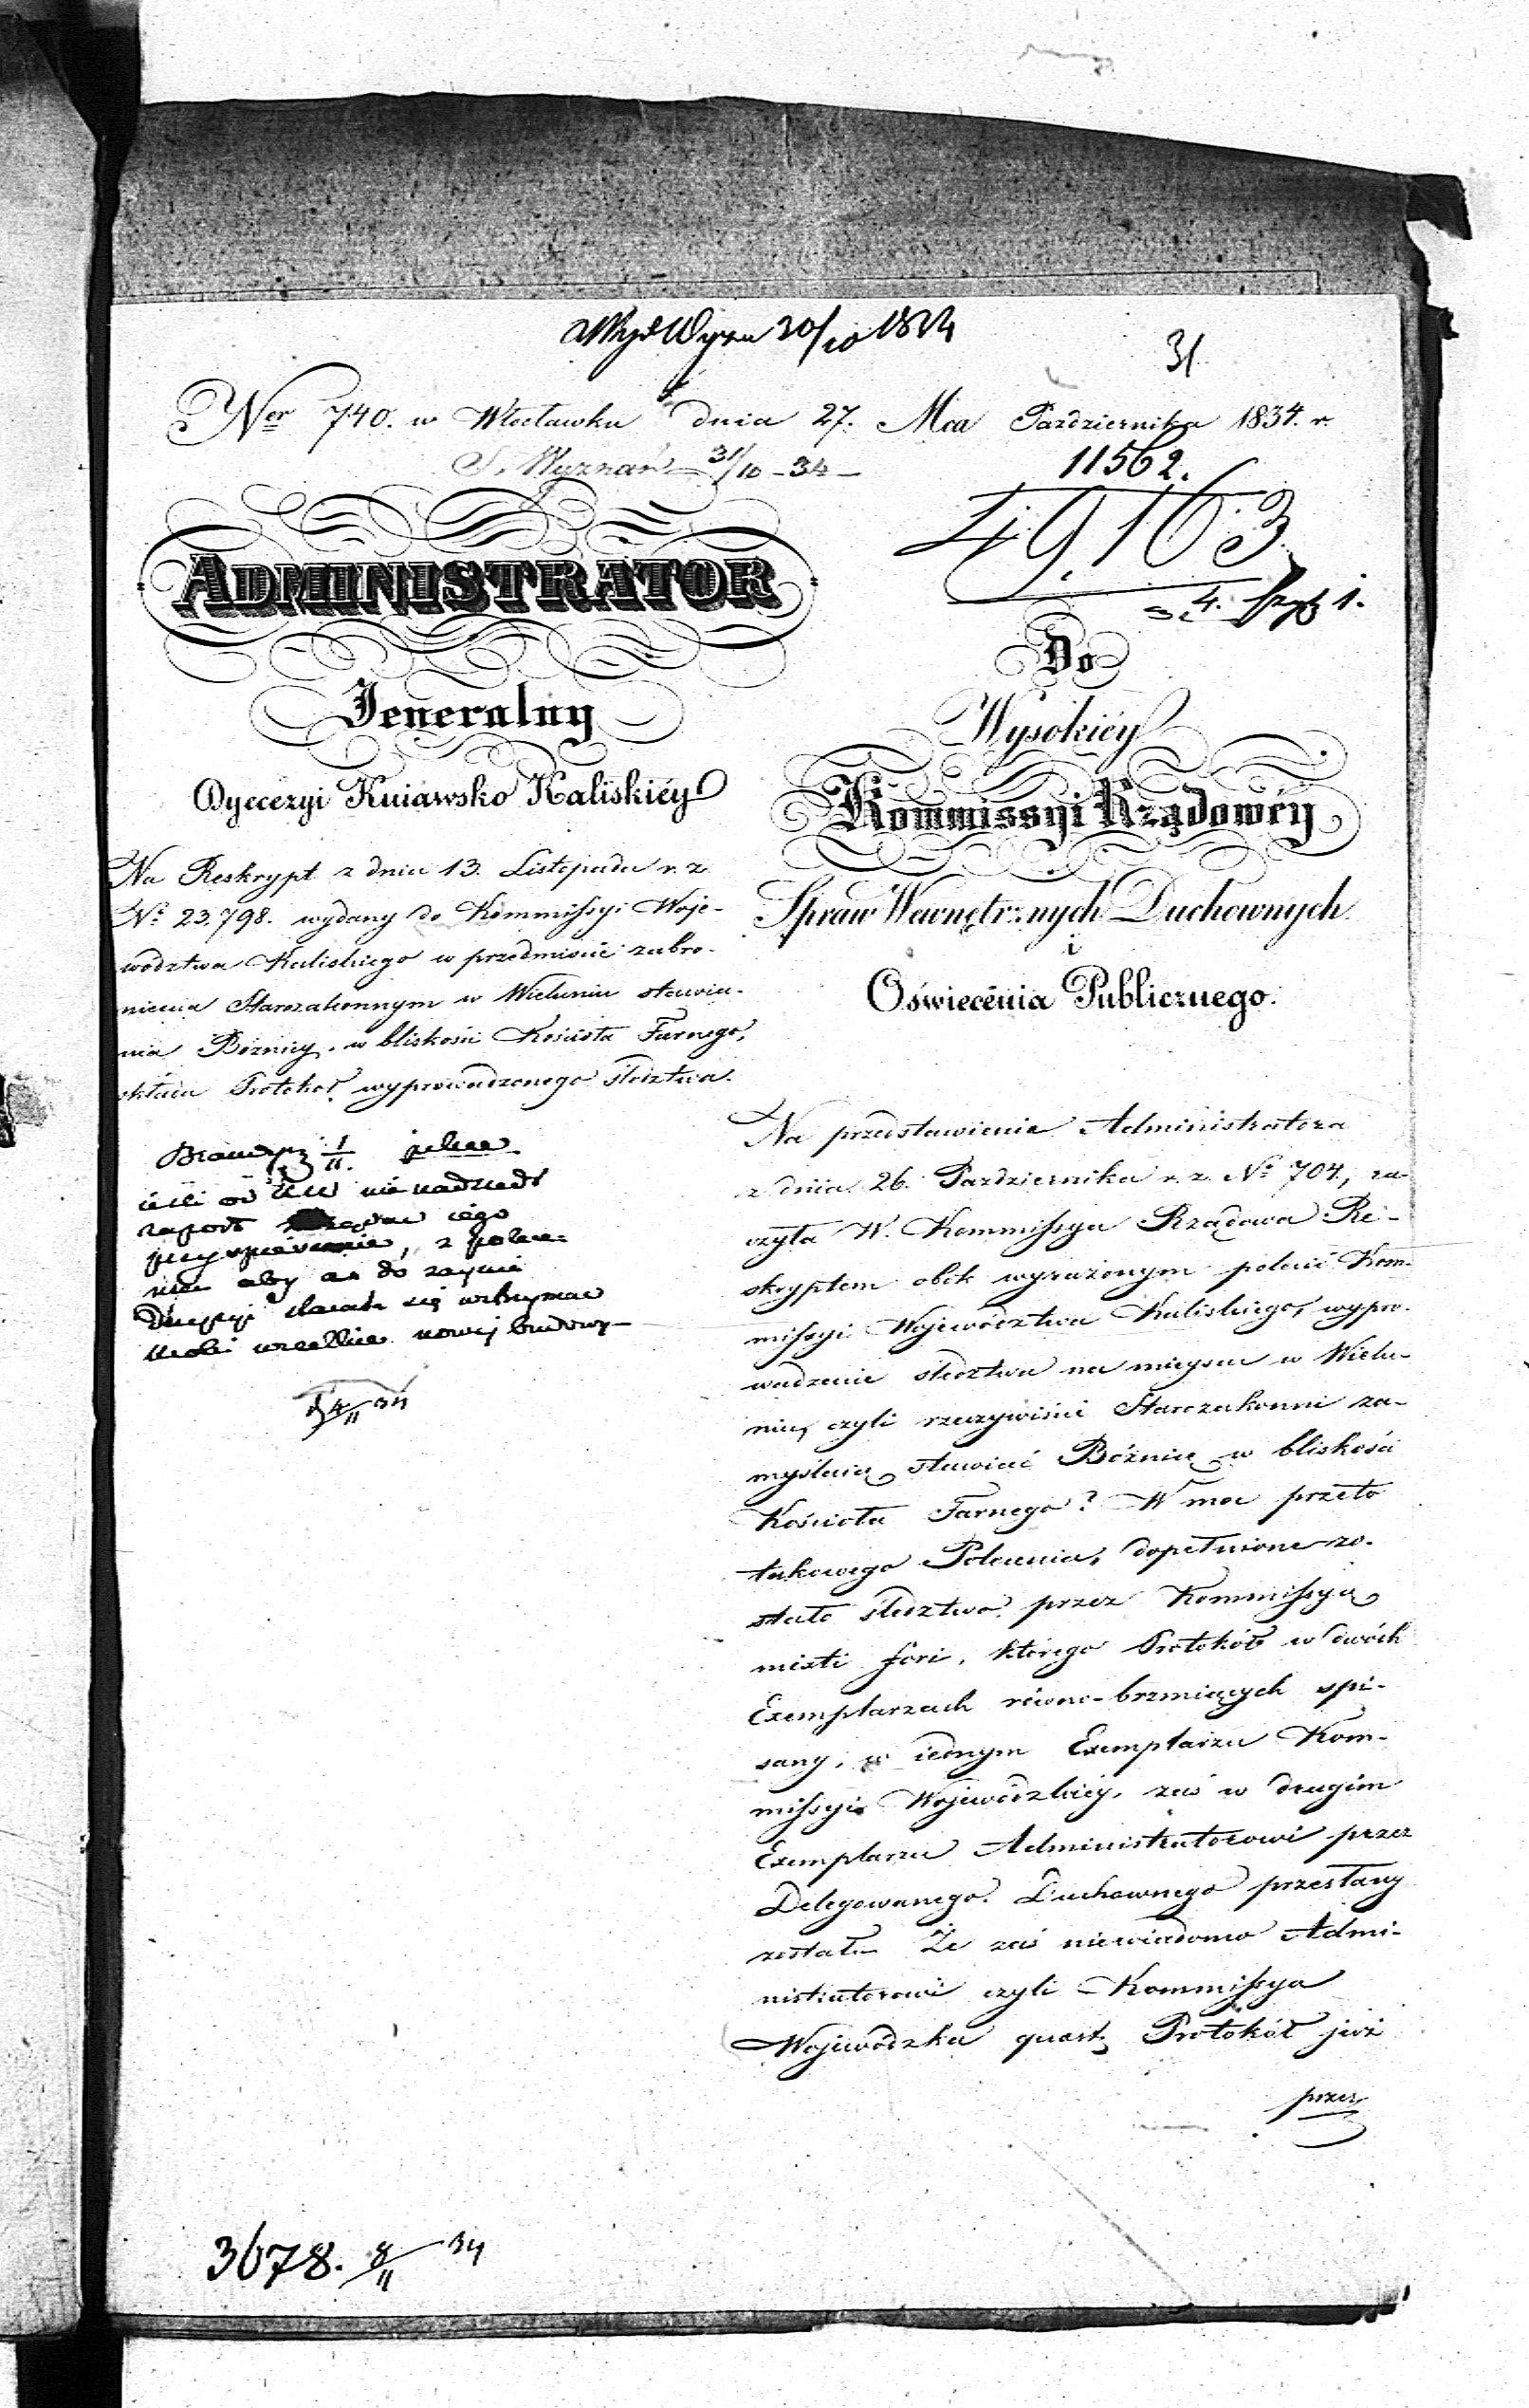 31
Ner 740. w Włocławku dnia 27. Mca Pazdziernika 1834. r.
S. Wyznań 31/10 - 34 -
11562.
49163
ADMINISTRATOR
Jeneralny
Dyecezyi Kuiawsko Kaliskiéy
Na Reskrypt z dnia 13. Listopada r. z.
No 23,798. wydany do Kommissyi Woje-
wodztwa Kaliskiego w przedmiocie zabro-
nienia Starozakonnym w Wieluniu stawia-
nia Bóżnicy, w bliskości Kościoła Farnego,
składa Protokoł wyprowadzonego śledztwa.
ieśli od nie nadszedł
raport iego
przyspieszenie, z polece-
niem aby aż do
decyzyi starała się wstrzymać
wszelkie nowej budowy
4/11 34
Do
Wysokiéy
Kommissyi Rządowéy
Spraw Wewnętrznych Duchownych
i
Oświecénia Publicznego.
Na przedstawienie Administratora
z dnia 26. Pazdziernika r. z. No 704, ra-
czyła W. Kommissya Rządowa Re-
skryptem obok wyrażonym polecić Kom-
missyi Województwa Kaliskiego, wypro-
wadzenie śledztwa na mieyscu w Wielu-
niu, czyli rzeczywiście Starozakonni za-
myślaią stawiać Bóżnicę w bliskości
Kościoła Farnego? W moc przeto
takowego Polecenia, dopełnione zo-
stało śledztwo przez Kommissyą
mixti fori, którego Protokół w dwóch
Exemplarzach równo-brzmiących spi-
sany, w iednym Exemplarzu Kom-
missyi Wojewódzkiéy, zaś w drugim
Exemplarzu Administratorowi przez
Delegowanego Duchownego przesłany
został. Że zaś niewiadomo Admi-
nistratorowi czyli Kommissya
Wojewódzka quaest. Protokół już
przez
3678. 8/11 34